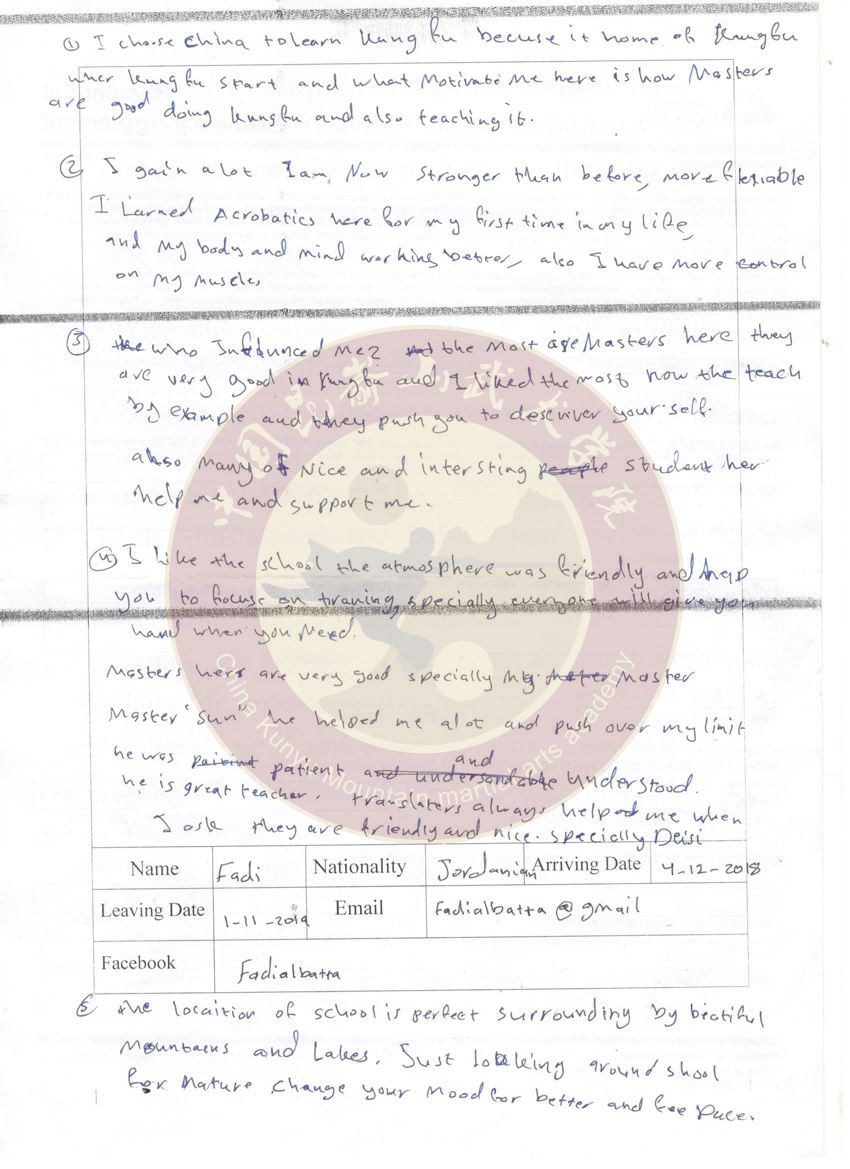 ① I choose China to learn Kung fu becuse it home of Kungfu
wher kungfu start and what Motivate Me here is how Masters
are good doing kungfu and also teaching it.
② I gain alot I am Now Stronger than before, more flexiable
I Larned Acrobatics here for my first time in my life,
and My body and mind working better, also I have more control
on my muscles,
③ the who Influnced me2 the most are Masters here they
are very good in Kungfu and I liked the most how the teach
by example and they push you to descriver your self.
also many of Nice and intersting people student her
help me and support me.
④ I like the school the atmosphere was friendly and help
you to focuse on traning, specially everyone will give you
hand when you Need.
Masters here are very good specially My Master
Master "Sun" he helped me alot and push over my limit
he was patient and understandable and Understood.
he is great teacher. translaters always helped me when
I ask they are friendly and nice. specially Deisi
Name Fadi Nationality Jordanian Arriving Date 4-12-2018
Leaving Date 1-11-2019 Email Fadialbatta @ gmail
Facebook Fadialbatta
5 the locaition of school is perfect surrounding by beatiful
Mountaens and Lakes. Just looking around shool
for Nature change your Mood for better and
中国昆嵛山武术学院
China Kunyu Mountain martial arts academy